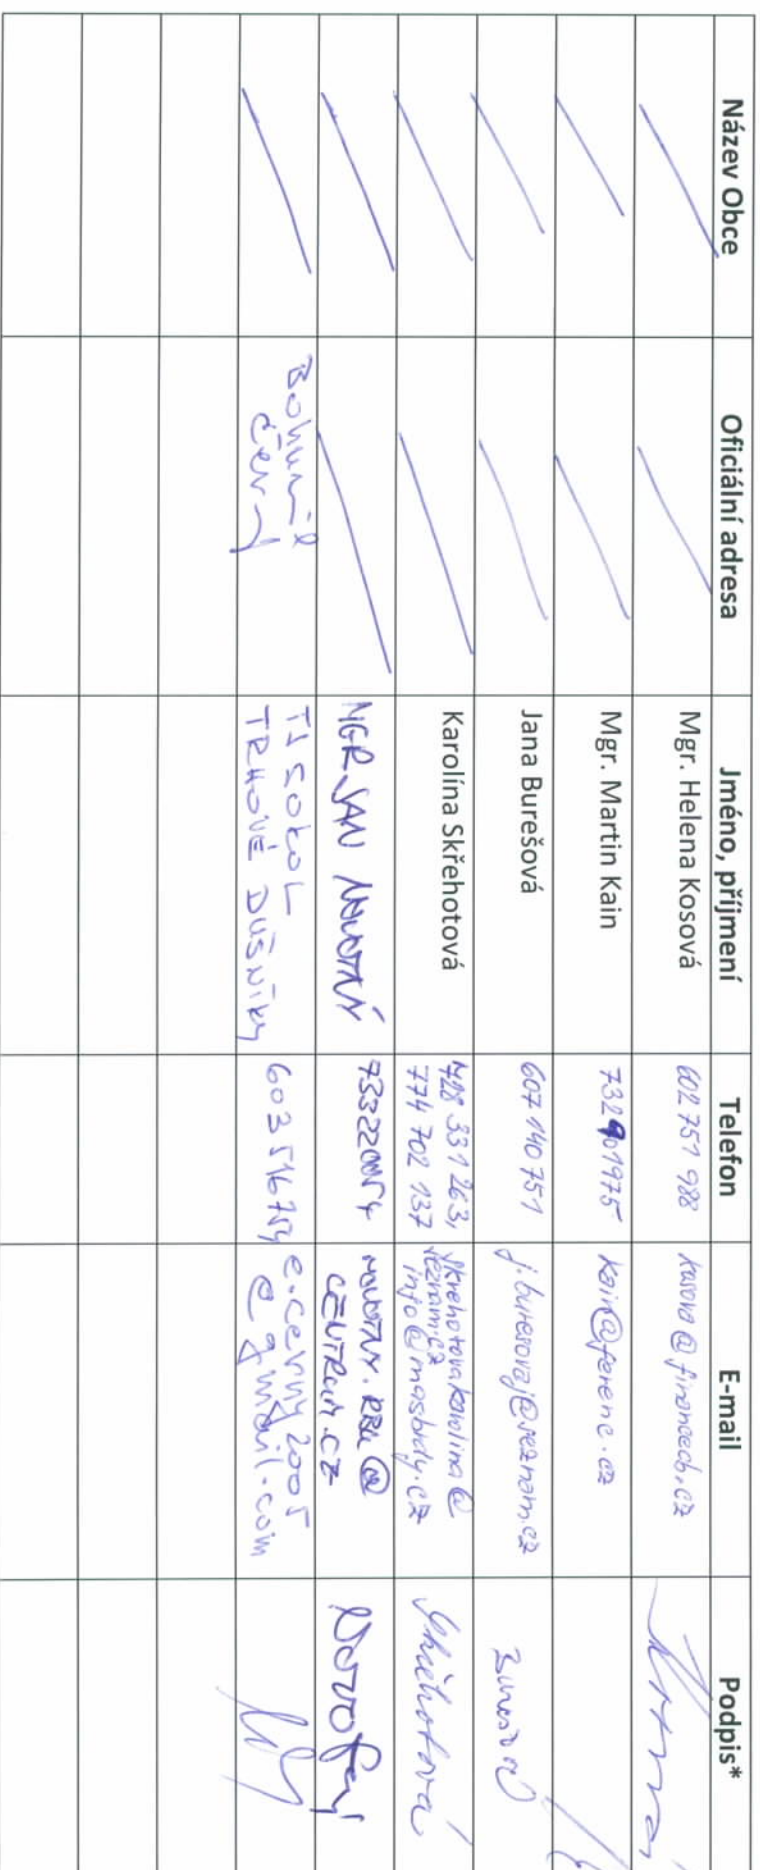 Název Obce Oficiální adresa Jméno, příjmení Telefon E-mail Podpis*
Mgr. Helena Kosová 602 751 988 kosova@financecb.cz
Mgr. Martin Kain 732901975 kain@ferenc.cz
Jana Burešová 607 140 751 j.buresovaj@seznam.cz Burešová
Karolína Skřehotová 728 331 263, skrehotovakarolina@
774 702 137 seznam.cz
info@masbrdy.cz Skřehotová
MGR JAN NOVOTNÝ 73322 NOVOTNY.RBK@
CENTRUM.CZ Novotný
Bohumil TJ SOKOL 603 516 754 e.cerny2005
Černý TRHOVÉ DUŠNÍKY @gmail.com